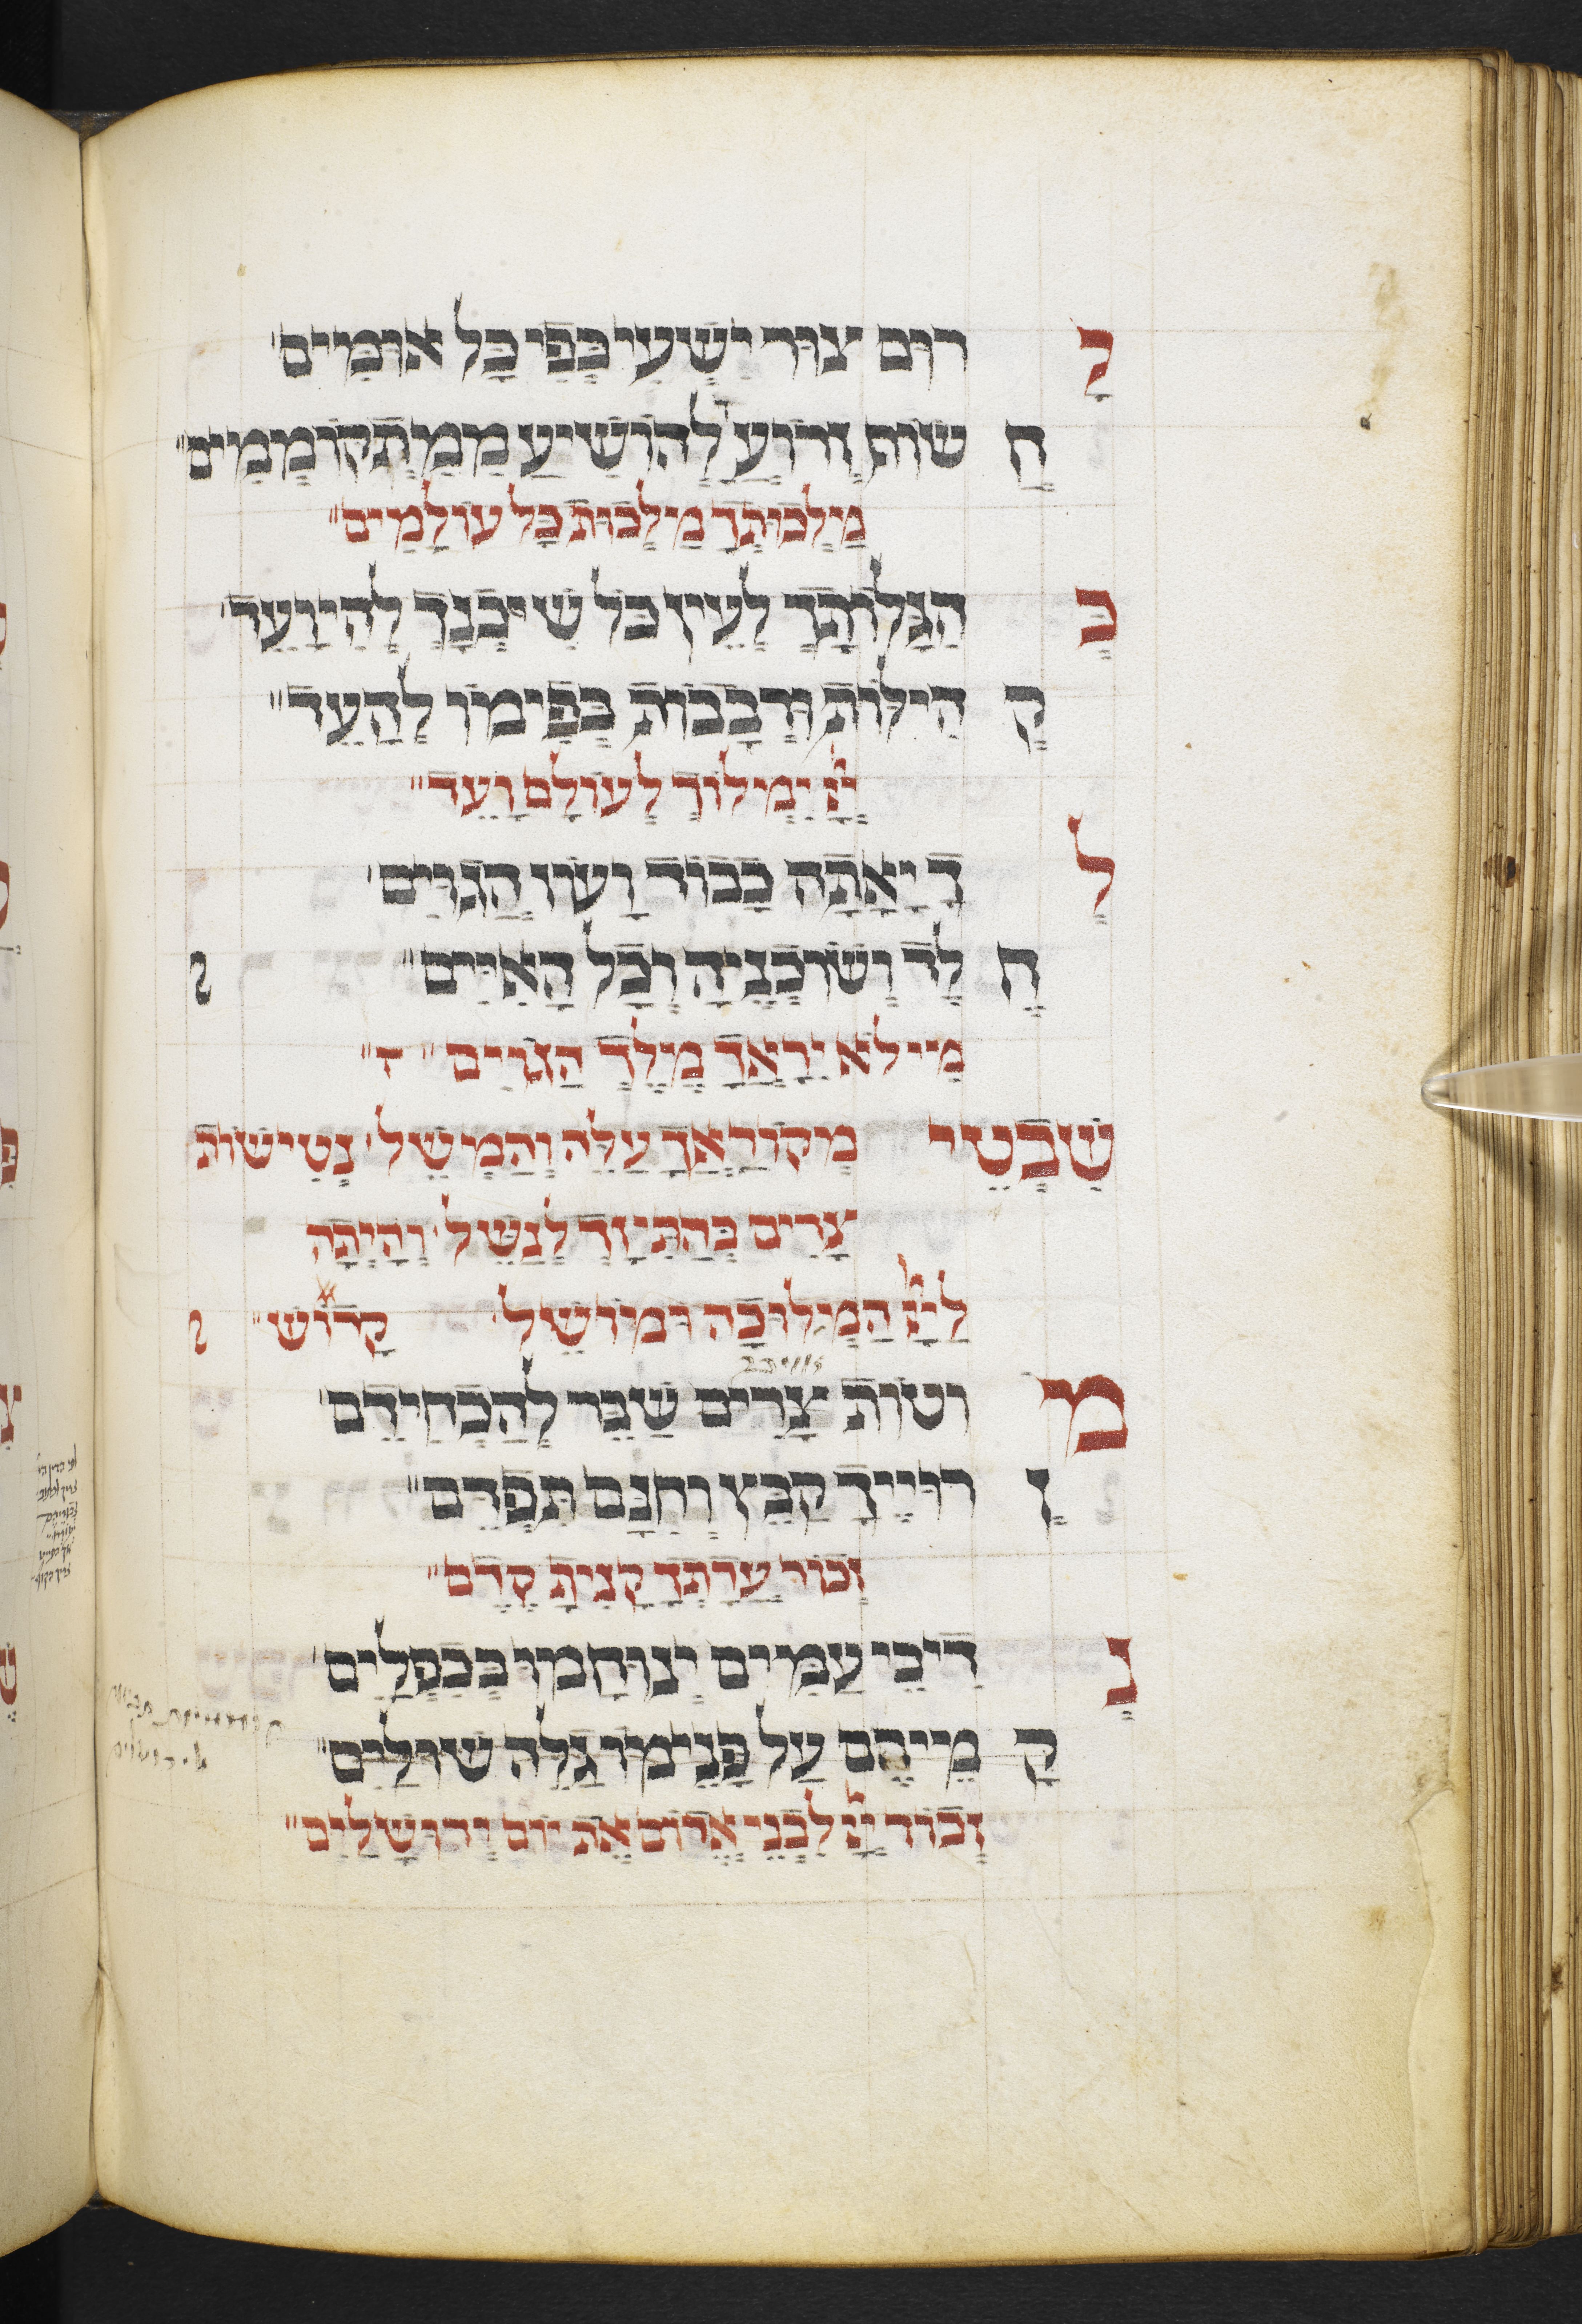 יָ רוּם צוּר יִשְׁעִי בְּפִי כָּל אוּמִּים׳
חֲ שׂוֹף זְרוֹעַ לְהוֹשִׁיעַ מִמִּתְקוֹמְמִים״
מַלְכוּתְךָ מַלְכוּת כָּל עוֹלָמִים״
כְּ הִגָּלוֹתְךָ לְעֵין כֹּל שִׁיבְנָךְ לְהִיוָּעֵד׳
קְ הִילּוֹת וּרְבָבוֹת בְּפִימוֹ לְהָעֵד״
יְיָ יִמְלוֹךְ לְעוֹלָם וָעֶד״
לְ ךָ יָאֲתָה כָּבוֹד וָעוֹז הַגּוֹיִם׳
חֶ לֶד וְשׁוֹכְנֶיהָ וְכָל הָאִיִּים״
מִי לֹא יִרָאֲךָ מֶלֶךְ הַגּוֹיִם״
שִׁבְטֵי מְקוֹרָאֲךָ עַלֵּה וְהַמְשֵׁל׳ נְטִישׁוֹת
צָרִים בְּהַתִּיזְךָ לְנַשֵּׁל׳ וְהָיְתָה
לַיְיָ הַמְּלוּכָה וּמוֹשֵׁל׳ קָדוֹשׁ״
מ וטוֹת צָרִים שַׁבֵּר לְהַכְחִידָם׳
זְ רוּיֶיךָ קַבֵּץ וְחִנָּם תִּפְדֵּם״
זְכוֹר עֲדָתְךָ קָנִיתָ קֶּדֶם״
נִ דְכֵּי עַמִּים יְנוּחָמוּ בְּכִפְלָיִם׳
קָ מֵיהֶם עַל פָּנֵימוֹ גַּלֵּה שׁוּלַיִם״
זְכוֹר יְיָ לִבְנֵי אֱדוֹם אֵת יוֹם יְרוּשָׁלַיִם״